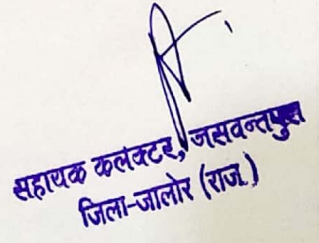 सहायक कलक्टर, जसवन्तपुरा
जिला-जालोर (राज.)